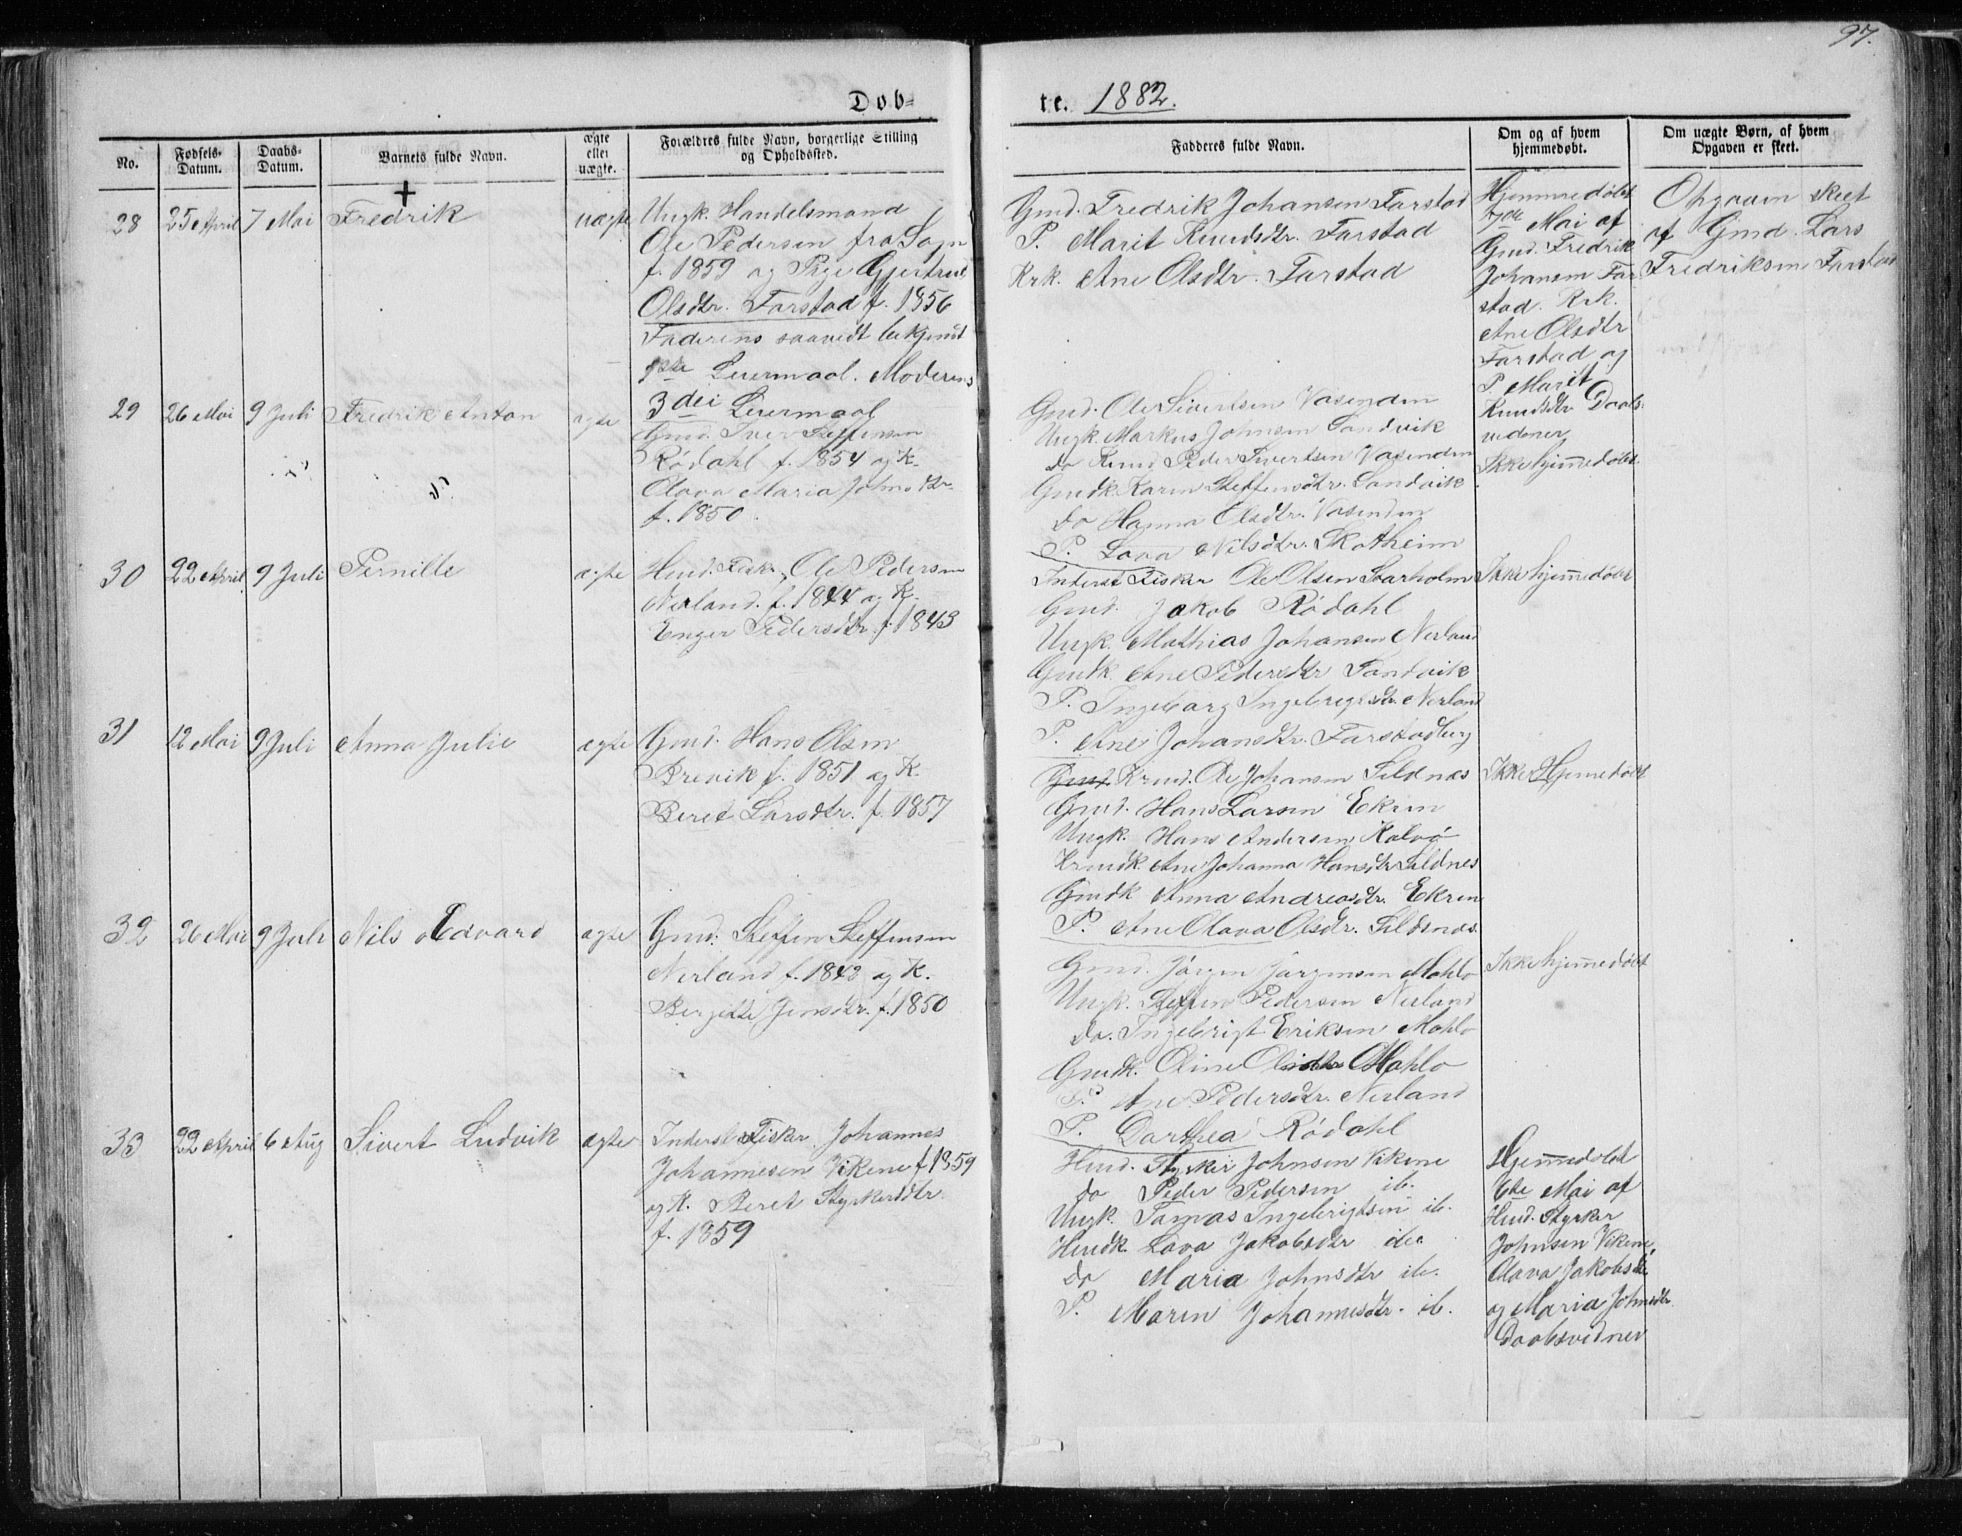 97.
Døb=
te. 1882.
No.
Fødsels-
Datum.
Daabs-
Datum.
Barnets fulde Navn.
ægte
eller
uægte.
Forældres fulde Navn, borgerlige Stilling
og Opholdssted.
Fadderes fulde Navn.
Om og af hvem
hjemmedøbt.
Om uægte Børn, af hvem
Opgaven er skeet.
28 25 April 7 Mai Fredrik uægte
Ungk. Handelsmand
Ole Pedersen fra Sogn
f. 1859 og Pige Gjertrud
Olsdtr. Farstad f. 1856
Faderens saavidt bekjendt
1ste Leiermaal. Moderens
3dei Leiermaal
Gmd. Fredrik Johansen Farstad
P. Marit Knudsdtr. Farstad
Krk. Ane Olsdtr. Farstad
Hjemmedøbt
Mai af
Gmd. Fredrik
Johansen Far
stad. Krk.
Ane Olsdtr
Farstad og
P Marit
Knudsdtr Daabs-
vidner
Opgaven skeet
af Gmd. Lars
Fredriksen Farstad
29 26 Mai 9 Juli Fredrik Anton ægte
Gmd. Iver Steffensen
Rødahl f. 1854 og K.
Olava Maria Johnsdtr.
f. 1850.
Gmd. Ole Sivertsen Vasenden
Ungk. Markus Johnsen Sandvik
do Knud Peder Sivertsen Vasenden
Gmdk. Karen Steffensdtr. Sandvik
do Hanna Olsdtr. Vasenden
P. Lava Nilsdtr. Skotheim
Ikke hjemmedøbt.
30 22 April 9 Juli Pernille ægte
Hmd. Fisker Ole Pedersen
Nerland. f. 1844 og K.
Enger Pedersdtr. f. 1843
Inderst Fisker Ole Olsen Svarholm
Gmd. Jakob Rødahl
Ungk. Mathias Johansen Nerland
Gmdk. Ane Pedersdtr Sandvik
P. Ingeborg Ingebrigtsdtr. Nerland
P. Ane Johansdtr. Farstadberg
Ikke hjemmedøbt
31 12 Mai 9 Juli Anna Julie ægte
Gmd. Hans Olsen
Brevik f. 1851 og K.
Beret Larsdtr. f. 1857
Gmd. Krmd. Ole Johansen Sildnes
Gmd. Hans Larsen Ekren
Ungk. Hans Andersen Kalvø
Krmdk. Ane Johanna Hansdtr Sildnes
Gmdk Anna Andreasdtr. Ekren
P. Ane Olava Olsdtr. Sildnes.
Ikke Hjemedøbt
32 26 Mai 9 Juli Nils Edvard ægte
Gmd. Steffen Steffensen
Nerland f. 1843 og K.
Bergitte Jensdtr. f. 1850
Gmd. Jørgen Jørgensen Mahlo
Ungk. Steffen Pedersen Nerland
do. Ingebrigt Eriksen Mahlo
Gmdk. Oline Olsdtr Mahlo
P. Ane Pedersdtr. Nerland
P. Dorthea Rødahl
Ikke hjemmedøbt
33 22 April 6 Aug Sivert Ludvik ægte
Inderst Fisker Johannes
Johannesen Vikene f 1859
og K. Beret Styrkersdtr.
f. 1859
Hmd. Styrker Johnsen Vikene
do Peder Pedersen ib.
Ungk. Tomas Ingebrigtsen ib.
Hmdk. Lava Jakobsdtr ib.
do Maria Johnsdtr ib.
P. Maren Johannesdtr. ib.
Hjemmedøbt
6te Mai af
Hmd. Styrker
Johnsen Vikene,
Olava Jakobsdtr
og Maria Johnsdtr
Daabsvidner